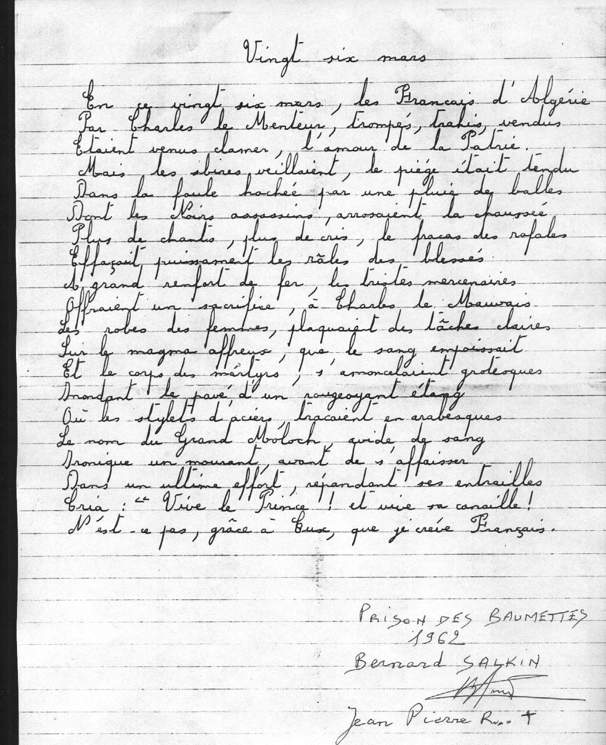 Vingt six mars
En ce vingt six mars, les Francais d'Algérie
Par Charles le Menteur, trompés, trahis, vendus
Etaient venus clamer, l'amour de la Patrie.
Mais les sbires veillaient, le piége était tendu
Dans la foule hachée par une pluie de balles
Dont les Noirs assassins, arrosaient la chaussée
Plus de chants, plus de cris, le fracas des rafales
Effaçait puissament les râles des blessés.
A grand renfort de fer, les tristes mercenaires
Offraient un sacrifice, à Charles le Mauvais.
Les robes des femmes, plaquaient des tâches claires
Sur le magma affreux, que le sang empoissait
Et le corps des mártyrs, s'amoncelaient grotesques
Inondant le pavé, d'un rougeoyant étang
Où les stylets d'aciers, traçaient en arabesques
Le nom du Grand Moloch, avide de sang
Ironique un mourant, avant de s'affaisser
Dans un ultime effort, repandant ses entrailles
Cria : " Vive le Prince ! et vive sa canaille !
N'est-ce pas, grâce à Eux, que je créve Français.
PRISON DES BAUMETTES
1962
Bernard SALKIN
Jean Pierre R... +